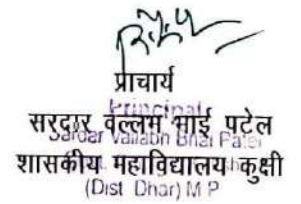 प्राचार्य
Principal
सरदार वल्लभ भाई पटेल
Sardar Vallabh Bhai Patel
शासकीय महाविद्यालय कुक्षी
(Dist Dhar) M P